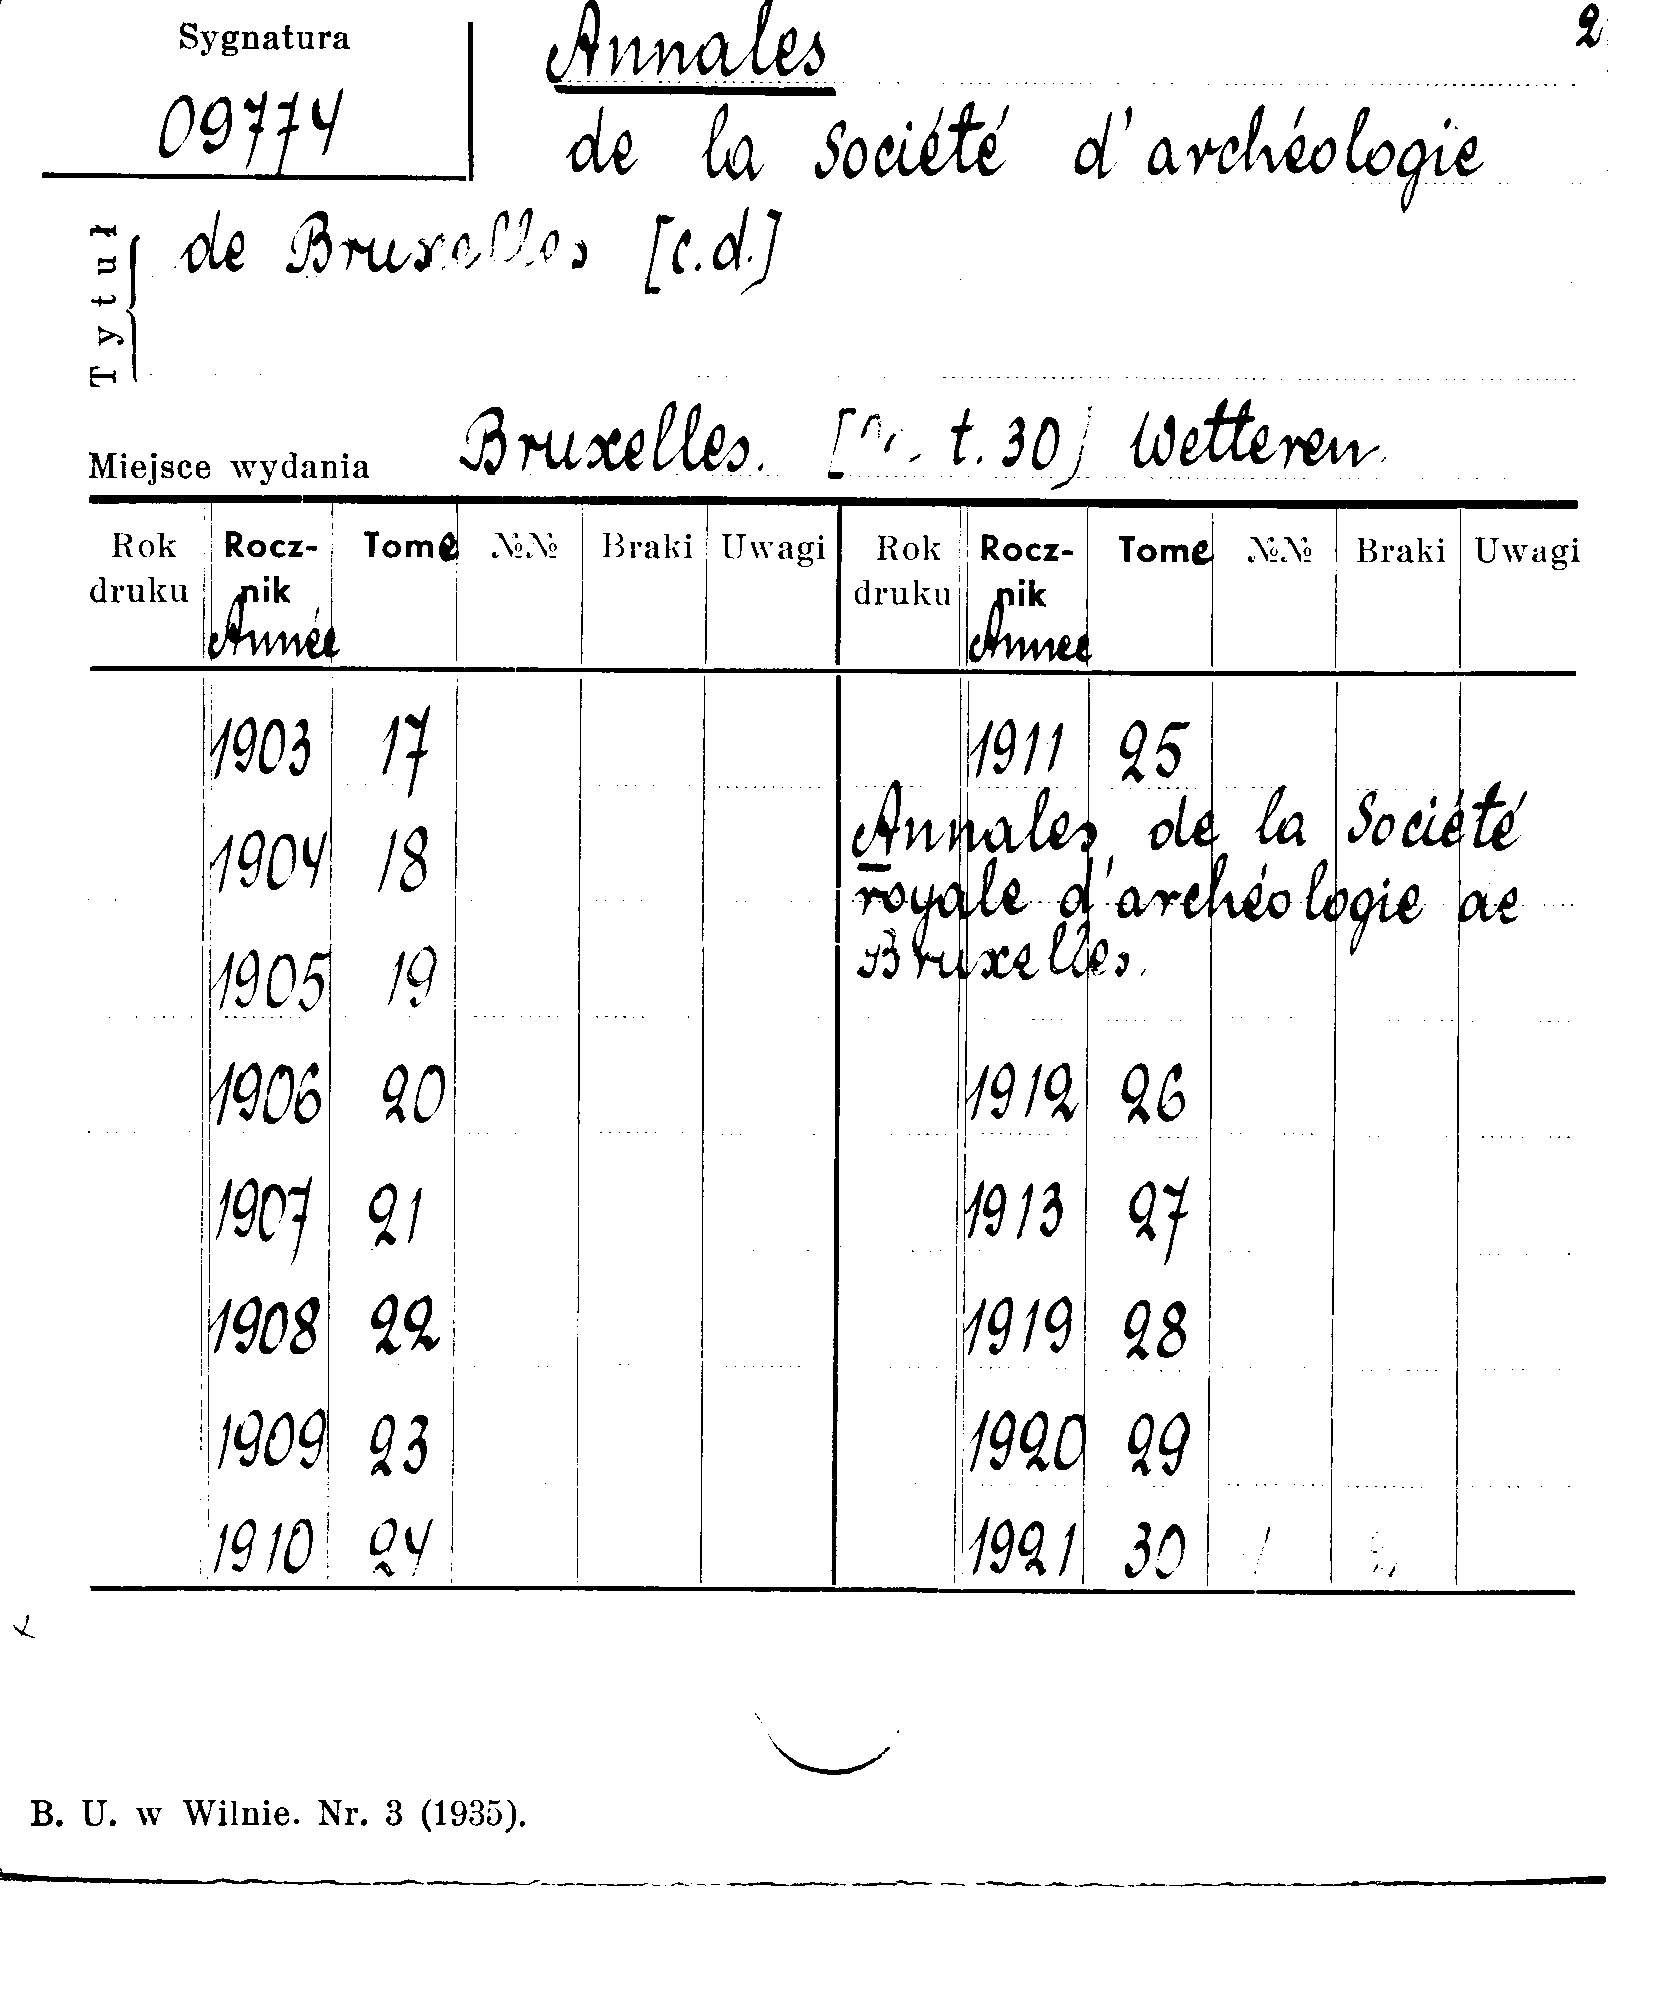 Sygnatura
09774
2
Annales
de la Société d'archéologie
de Bruxelles [c.d.]
Tytuł
Miejsce wydania Bruxelles. [ t. 30] Wetteren.
Rok druku Rocz-nik Année Tome №№ Braki Uwagi Rok druku Rocz-nik Annee Tome №№ Braki Uwagi
1903 17
1904 18
1905 19
1906 20
1907 21
1908 22
1909 23
1910 24
1911 25
Annales de la Société
royale d'archéologie de
Bruxelles.
1912 26
1913 27
1919 28
1920 29
1921 30
B. U. w Wilnie. Nr. 3 (1935).